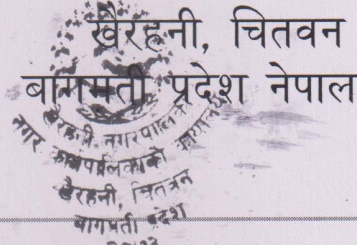 खैरहनी, चितवन
बागमती प्रदेश नेपाल
खैरहनी नगरपालिका
नगर कार्यपालिकाको कार्यालय
खैरहनी, चितवन
बागमती प्रदेश